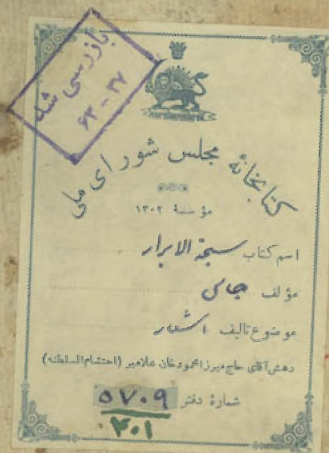 بازرسی شد
۶۳ - ۳۷
کتابخانهٔ مجلس شورای ملی
مؤسسهٔ ۱۳۰۲
اسم کتاب سبحة الابرار
مؤلف جامی
موضوع تالیف اشعار
دهش آقای حاج میرزا محمود خان علامیر (احتشام السلطنه)
شمارهٔ دفتر ۵۷۰۹
۴۰۱